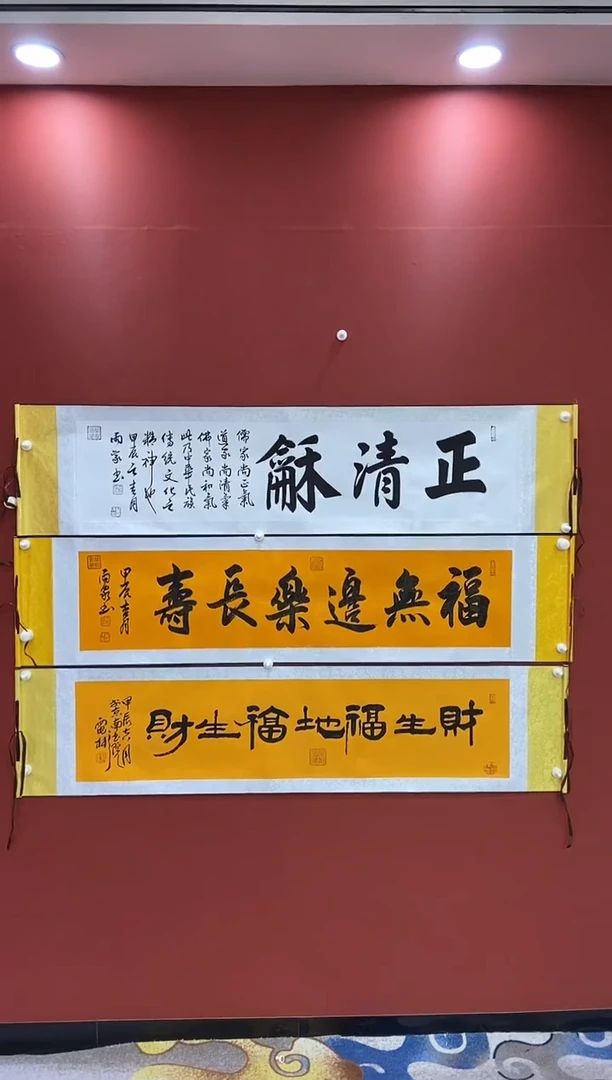 正清龢
儒家尚正氣
道家尚清氣
佛家尚和氣
此乃中華民族
傳統文化之
精神也
甲辰之吉月
雨泉書
福無邊樂長壽
甲辰吉月
雨泉書
財生福地福生財
甲辰六月